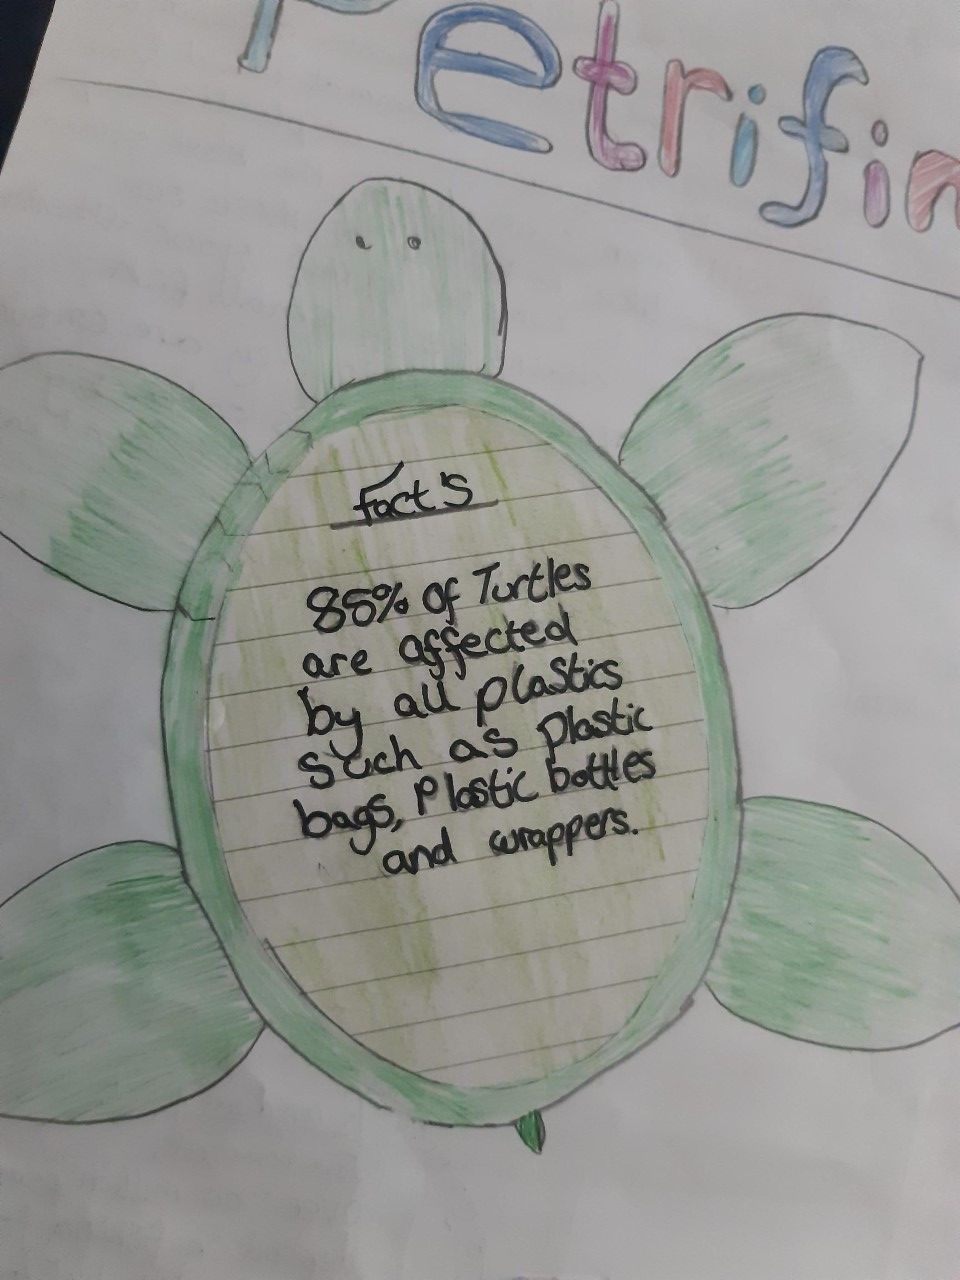 Petrifin
fact's
85% of Turtles
are affected
by all plastics
such as plastic
bags, Plastic bottles
and wrappers.